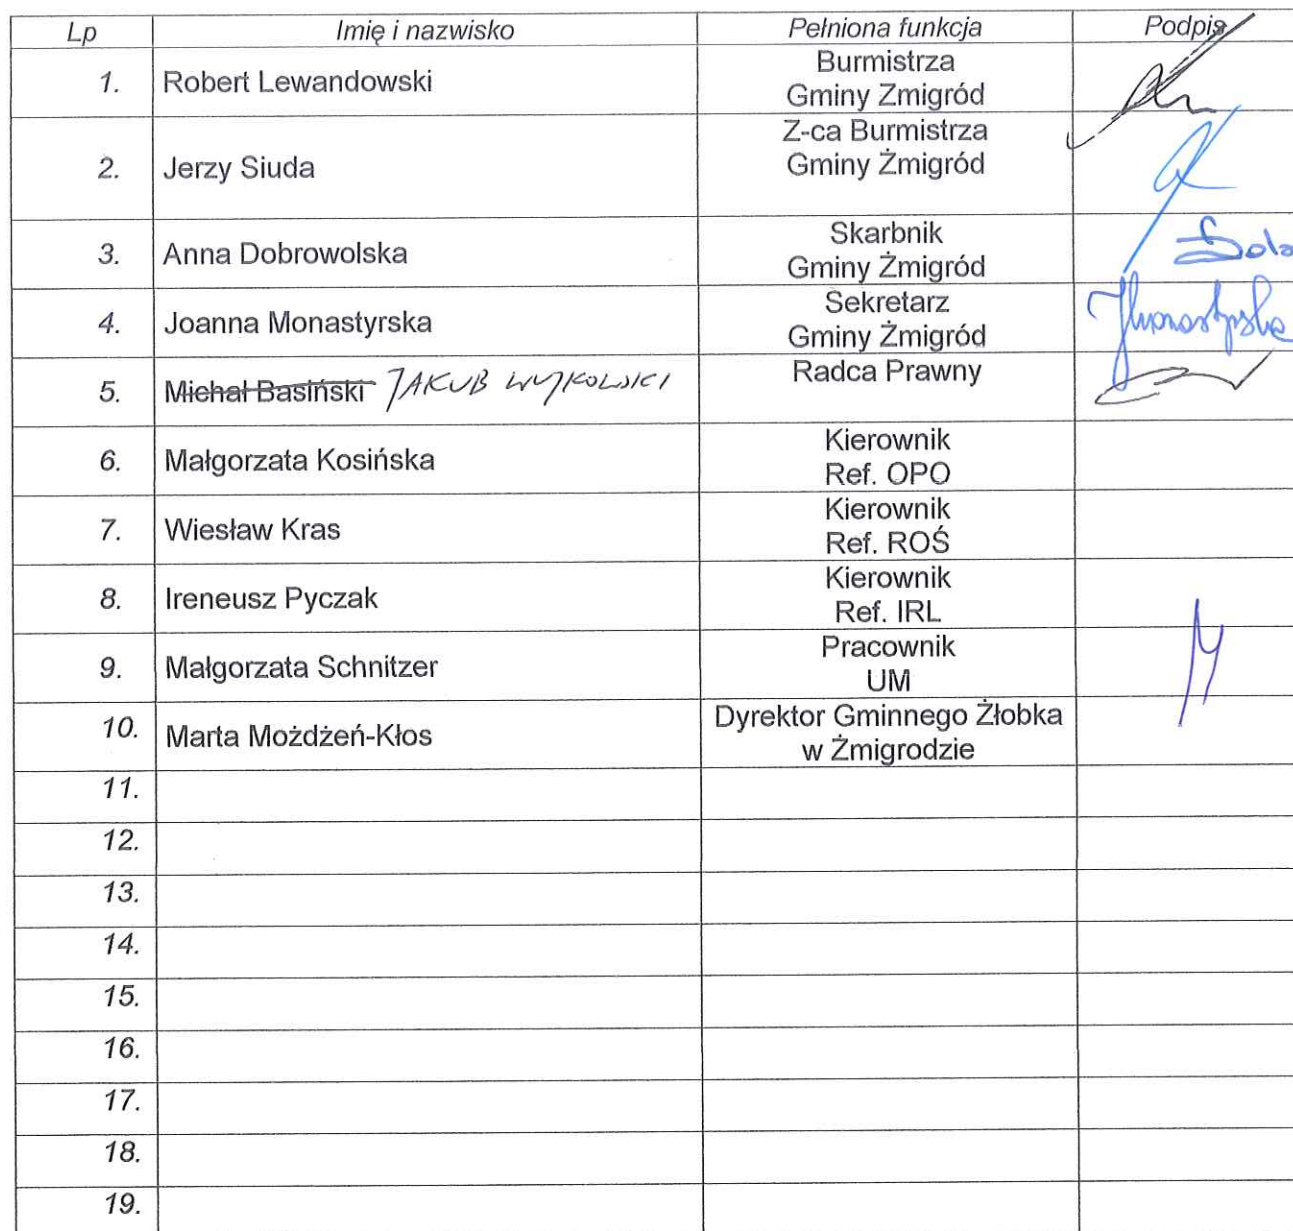 Lp Imię i nazwisko Pełniona funkcja Podpis
1. Robert Lewandowski Burmistrza
Gminy Zmigród
2. Jerzy Siuda Z-ca Burmistrza
Gminy Żmigród
3. Anna Dobrowolska Skarbnik
Gminy Żmigród
4. Joanna Monastyrska Sekretarz
Gminy Żmigród
5. Michał Basiński JAKUB WYKOWSKI Radca Prawny
6. Małgorzata Kosińska Kierownik
Ref. OPO
7. Wiesław Kras Kierownik
Ref. ROŚ
8. Ireneusz Pyczak Kierownik
Ref. IRL
9. Małgorzata Schnitzer Pracownik
UM
10. Marta Możdżeń-Kłos Dyrektor Gminnego Żłobka
w Żmigrodzie
11.
12.
13.
14.
15.
16.
17.
18.
19.